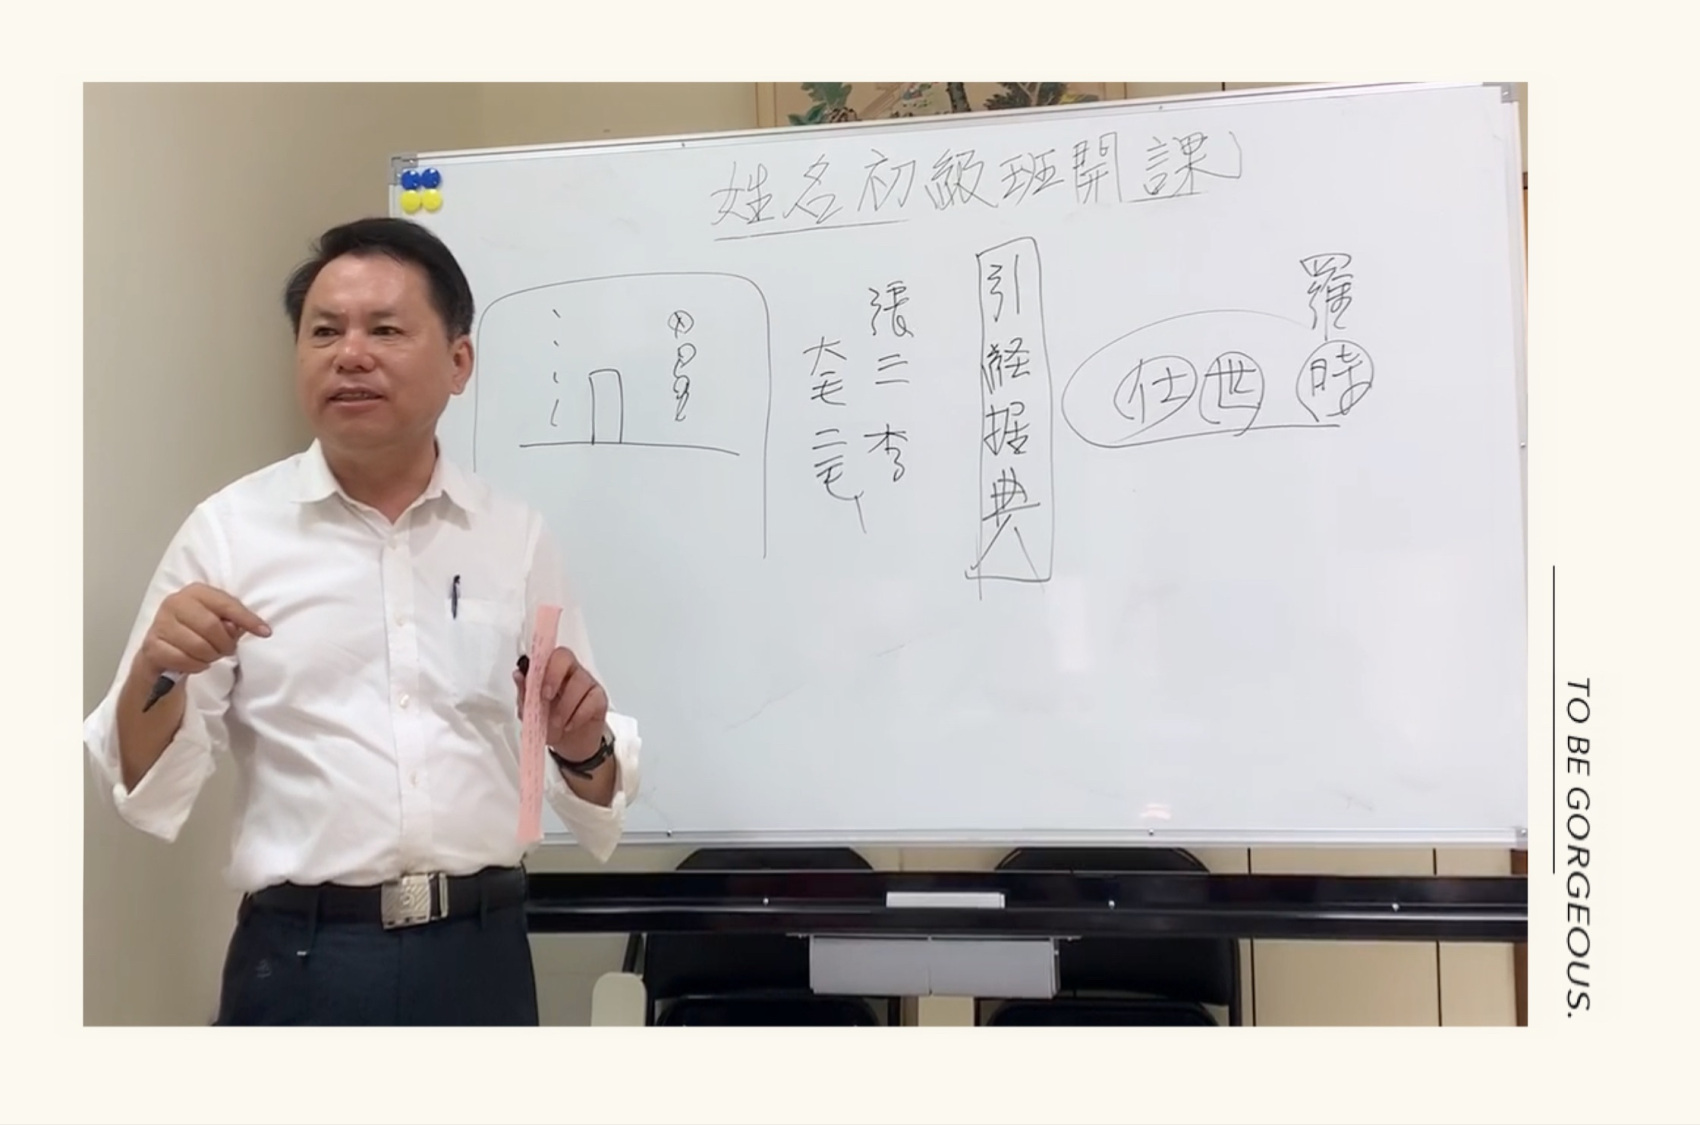 姓名初級班開課
羅
時
世
仕
引經据典
張三 李
大毛 二毛
TO BE GORGEOUS.